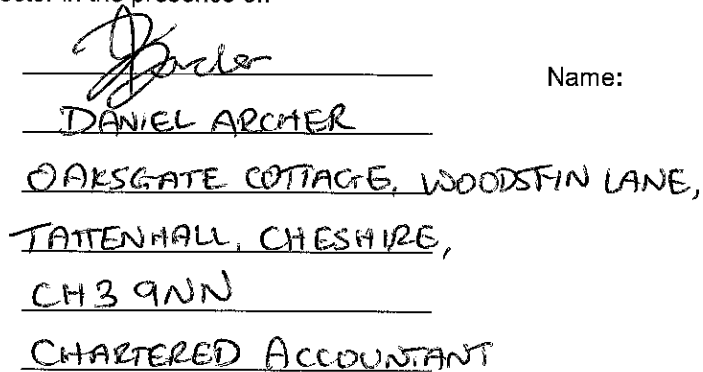 in the presence of:
Name:
DANIEL ARCHER
OAKSGATE COTTAGE, WOODSFIN LANE,
TATTENHALL, CHESHIRE,
CH3 9NN
CHARTERED ACCOUNTANT